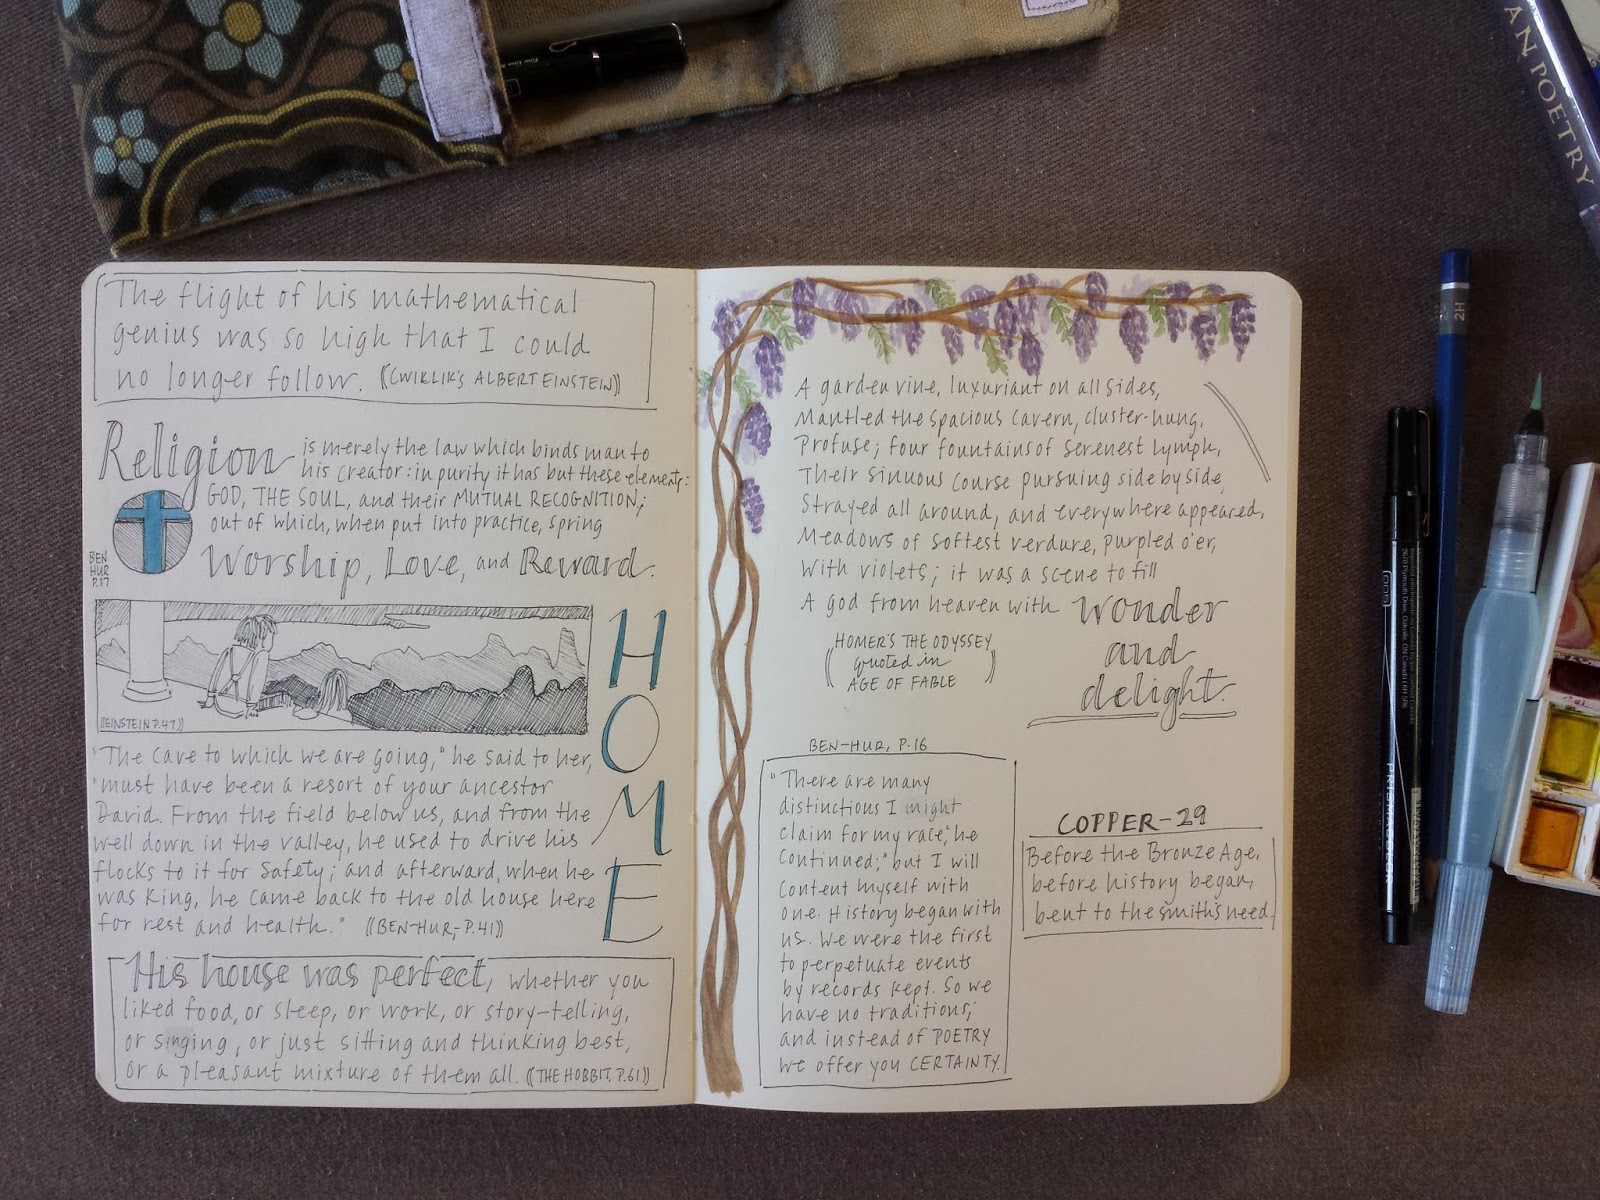 The flight of his mathematical
genius was so high that I could
no longer follow. ((CWIKLIK'S ALBERT EINSTEIN))
Religion is merely the law which binds man to
his creator: in purity it has but these elements:
GOD, THE SOUL, and their MUTUAL RECOGNITION;
out of which, when put into practice, spring
Worship, Love, and Reward.
BEN
HUR
P.17
((EINSTEIN P.47))
HOME
"The cave to which we are going," he said to her,
"must have been a resort of your ancestor
David. From the field below us, and from the
well down in the valley, he used to drive his
flocks to it for safety; and afterward, when he
was King, he came back to the old house here
for rest and health." ((BEN-HUR, P.41))
His house was perfect, whether you
liked food, or sleep, or work, or story-telling,
or singing, or just sitting and thinking best,
or a pleasant mixture of them all. ((THE HOBBIT, P.61))
A garden vine, luxuriant on all sides,
Mantled the spacious cavern, cluster-hung,
Profuse; four fountains of serenest lymph,
Their sinuous course pursuing side by side,
Strayed all around, and everywhere appeared,
Meadows of softest verdure, purpled o'er,
With violets; it was a scene to fill
A god from heaven with wonder
and
delight.
((HOMER'S THE ODYSSEY
quoted in
AGE OF FABLE))
BEN-HUR, P.16
"There are many
distinctions I might
claim for my race," he
continued; "but I will
content myself with
one. History began with
us. We were the first
to perpetuate events
by records kept. So we
have no traditions;
and instead of POETRY
we offer you CERTAINTY.
COPPER-29
Before the Bronze Age,
before history began,
bent to the smith's need.
AN POETRY
2H
005
PRISMACOLOR